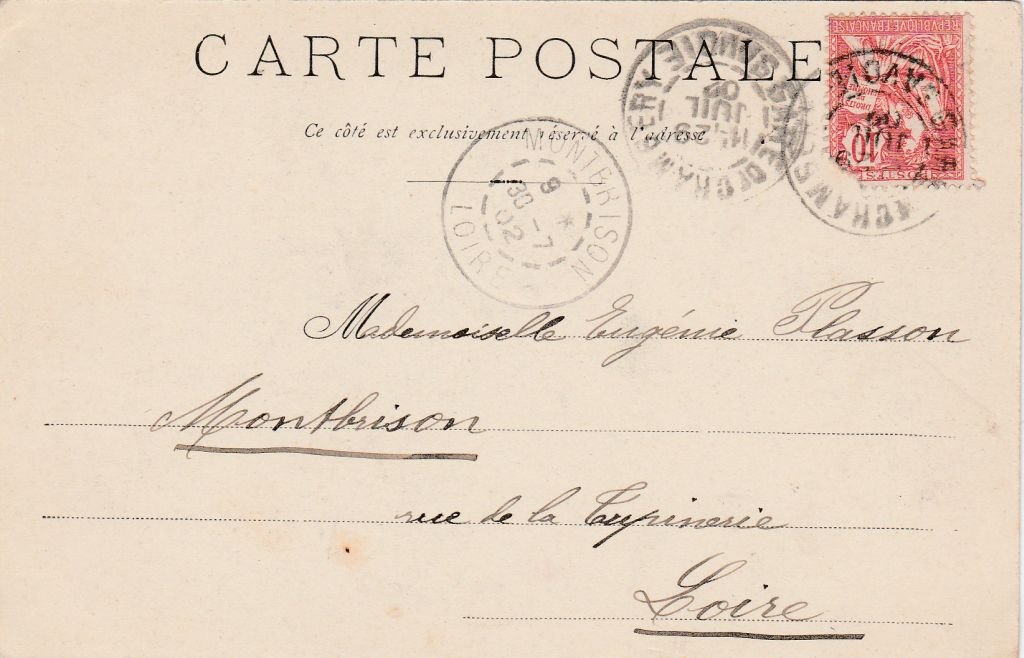 CARTE POSTALE
Ce côté est exclusivement réservé à l'adresse
MONTBRISON
8 *
30 - 7
02
LOIRE
GARE DE CHAMBERY SAVOIE
JUIL
02
REPVBLIQVE FRANÇAISE
10
POSTES
Mademoiselle Eugénie Plasson
Montbrison
rue de la Tupinerie
Loire